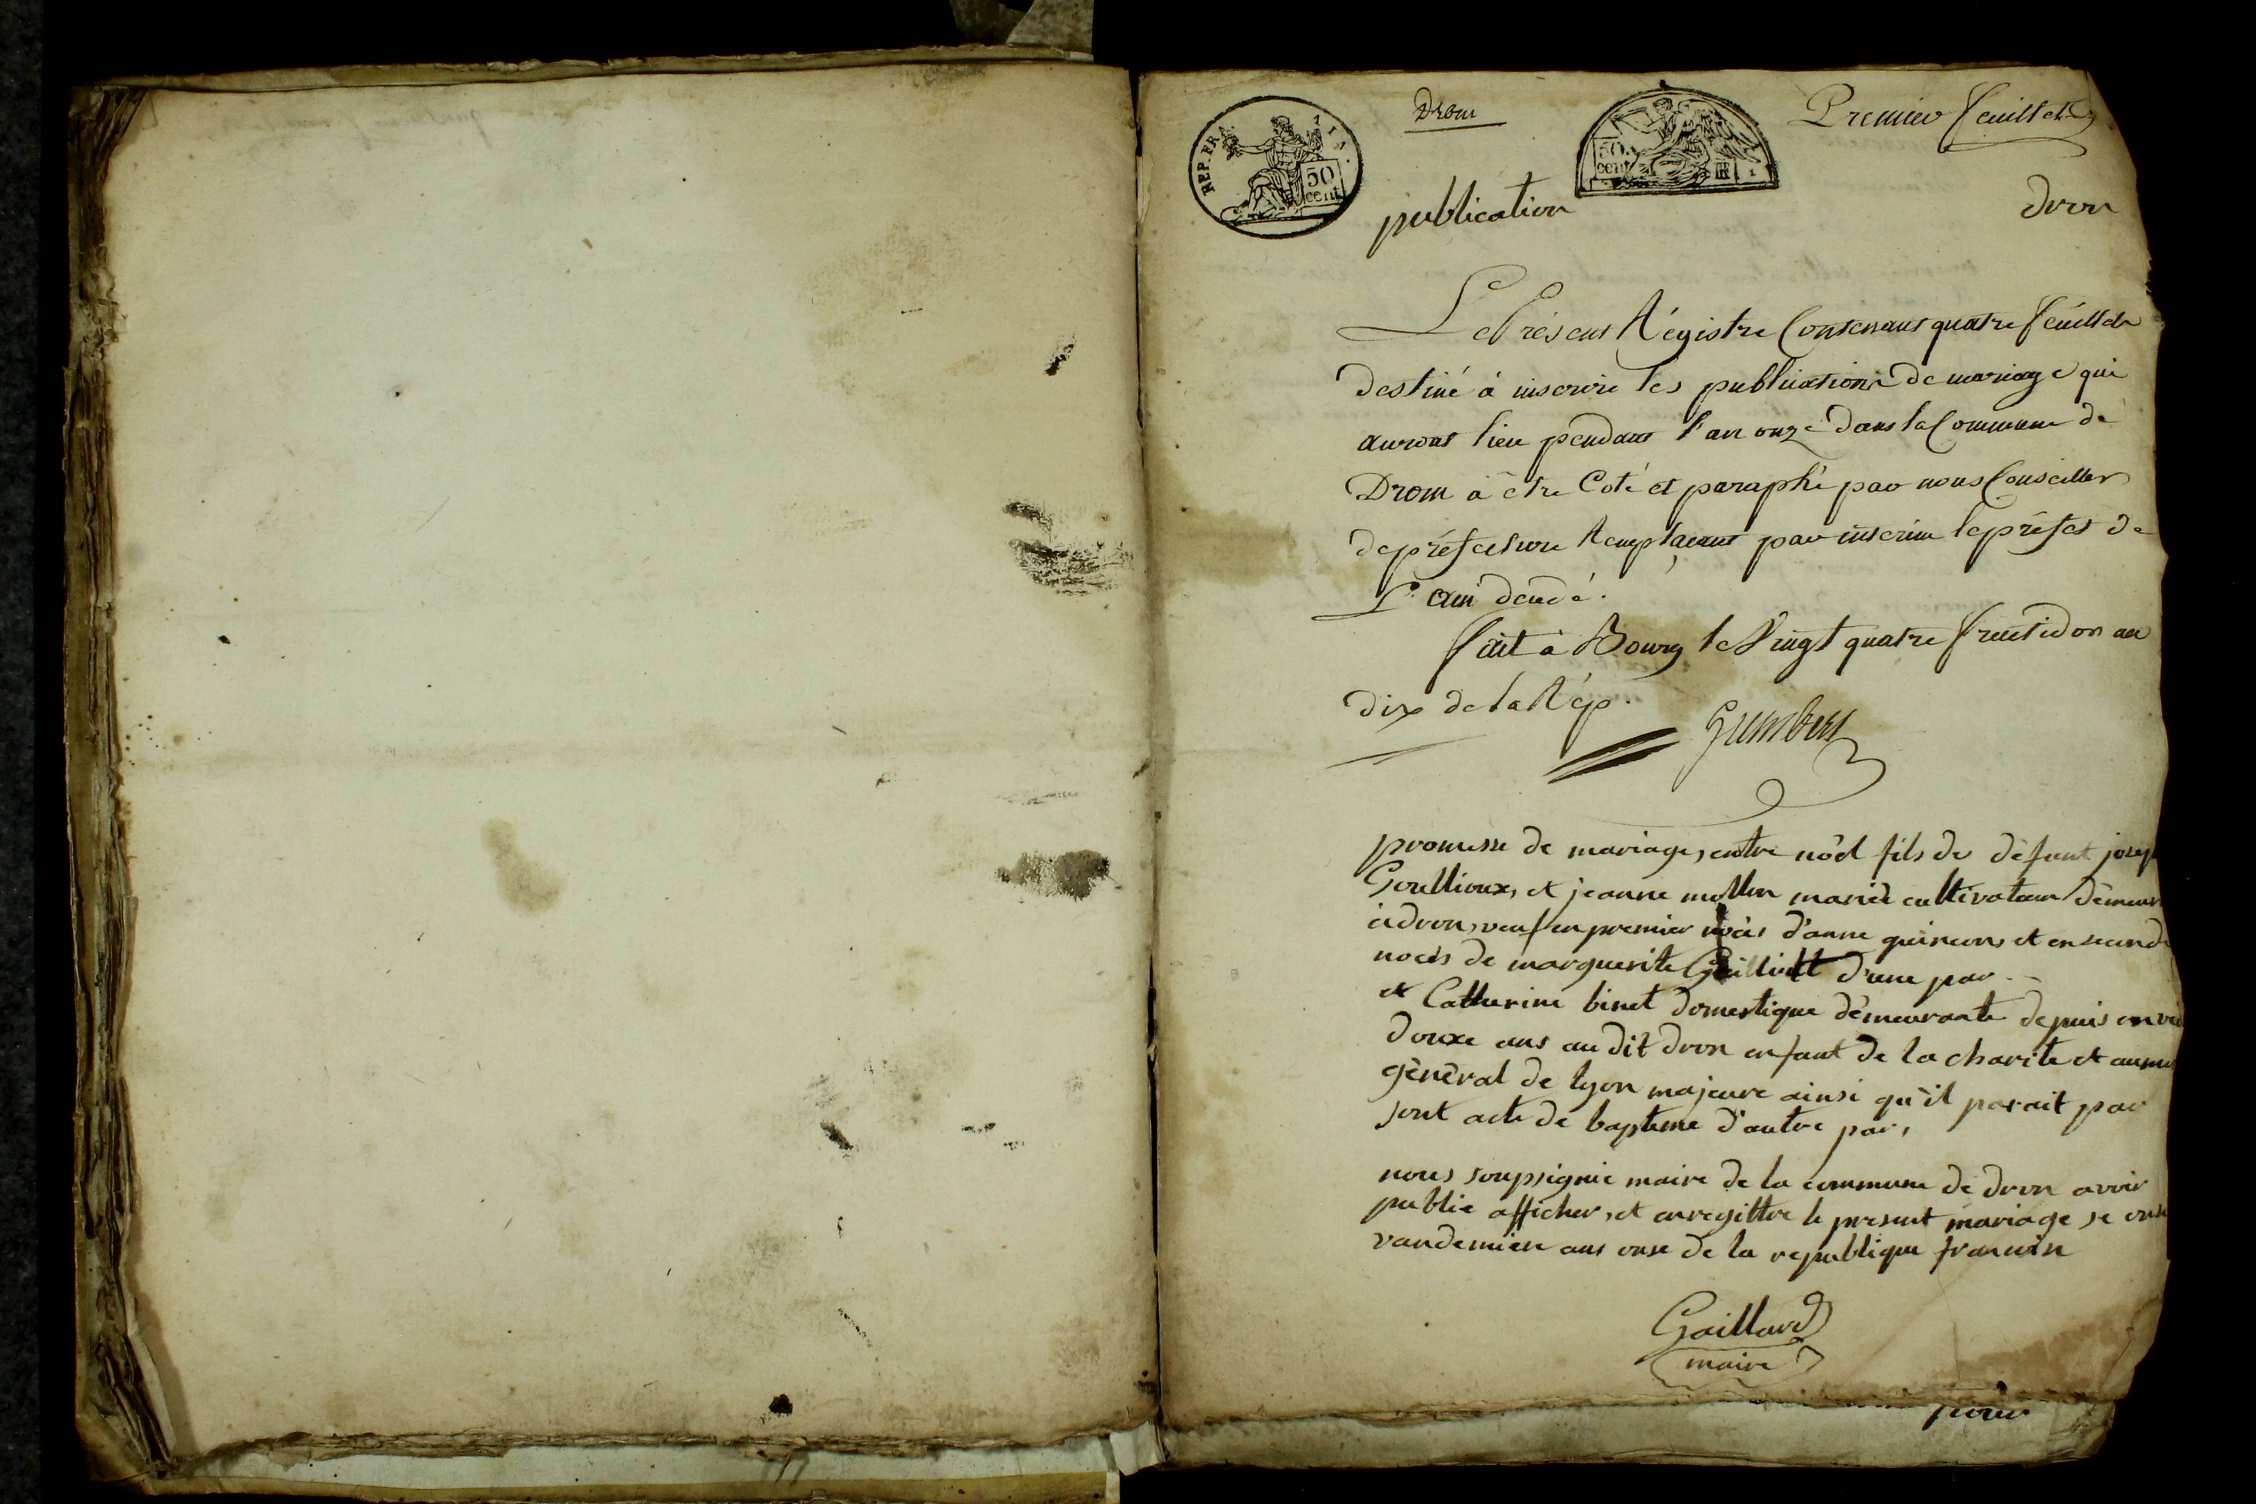 Drom
Premier feuillet
REP. FRA.
50
cent
50
cent
publication
dron
Le Présent Régistre Contenant quatre feuillets
destiné à inscrire les publications de mariage qui
auront lieu pendant l'an onze dans la Commune de
Drom à être Coté et paraphé par nous Conseiller
de préfecture Remplaçant par interim le préfet de
L'ain
fait à Bourg le Vingt quatre fructidor an
dix de la Rép.
promesse de mariage, entre nöel fils de défunt josep
Goullioux, et jeanne mollin marièe cultivateur demeur
à dron, veuf en premier noces d'anne et en second
noces de marguerite d'une par
et Catherine binet domestique démeurante depuis envi
douxe ans au dit dron enfant de la charite et aumo
général de lyon majeure ainsi qu'il parait par
sont acte de bapteme d'autre par,
nous soupsignie maire de la commune de dron avoir
publie afficher, et enregittre le present mariage se onse
vandemien ans onse de la republique
Gaillard
maire